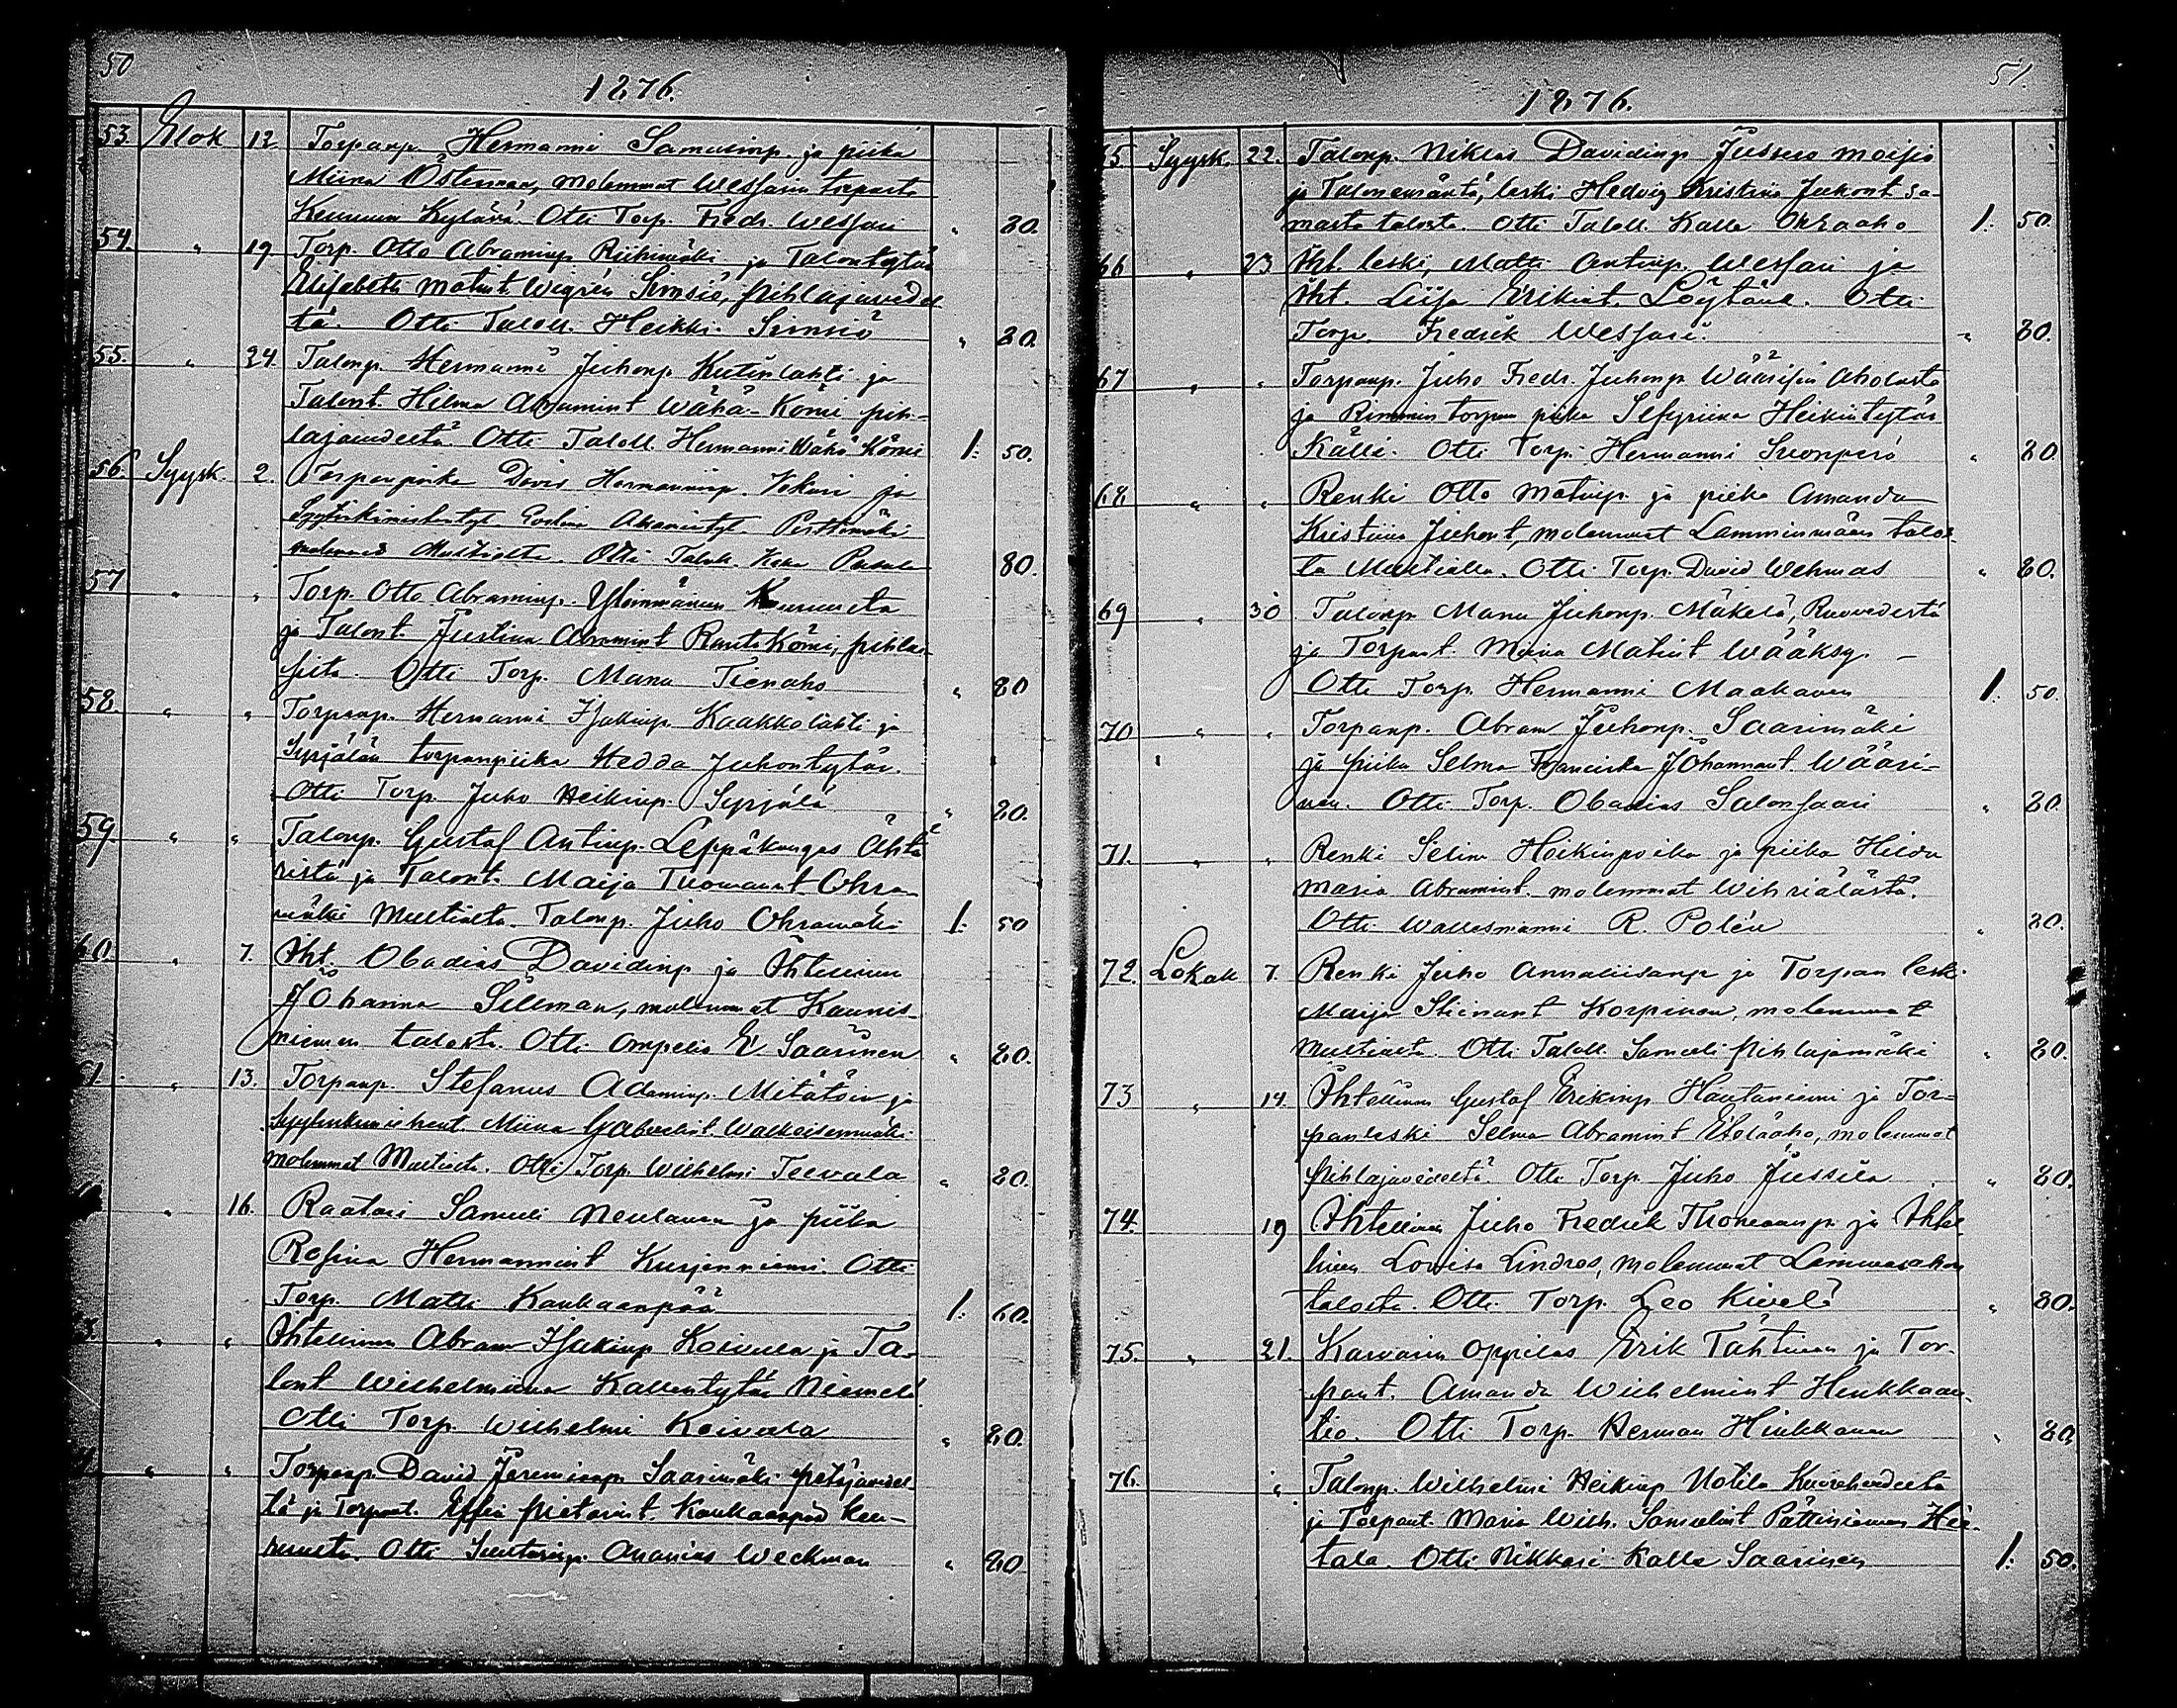 50
1876.
53. Elok 12 Torpanp. Hermanni Samulinp. ja piika
Miina Österman, molemmat Wessarin torpasta
Keuruun Kylävä. Otti Torp. Fredr. Wessari " 80.
54. " 19 Torp. Otto Abraminp. Riihimäki ja Talontytär
Elisabeth Matint. Wigrén Simsiö, Pihlajavedel
tä. Otti Taloll. Heikki Simsiö " 80.
55. " 24. Talonp. Hermanni Juhonp. Kutinlahti ja
Talont. Hilma Abramint Wähä-Kömi Pih-
lajavedeltä. Otti Taloll. Hermanni Wähä Kömi 1: 50.
56. Syysk. 2. Torpanpoika David Hermanninp. ja
molemmat Multialta. Otti Taloll. 80.
57 " " Torp. Otto Abraminp. Yleinmäinen Keuruulta
ja Talont. Justina Abramint Rautakömi, Pihla-
jista. Otti Torp. Manu Tienaho " 80
58. " " Torpanp. Hermanni Isakinp. Kaakkolahti ja
Syrjälän torpanpiika Hedda Juhontytär.
Otti Torp. Juho Heikinp. Syrjälä " 80.
59. " " Talonp. Gustaf Antinp. Leppäkangas Ähtä
ristä ja Talont. Maija Thomaant Ohra-
mäki Multialta. Talonp. Juho Ohramäki 1: 50
60. " 7. Iht. Obadias Davidinp ja Ihtellinen
Johanna Sillman, molemmat Kaunis-
niemen talosta. Otti ompelia E. Saarinen " 80.
61. " 13. Torpanp. Stefanus Adaminp. Mitätöin ja
Miina Gabrielint. Walkeisenmäki
molemmat Multialta. Otti Torp. Wilhelmi Teevala " 80.
" 16. Raatari Samuli Neulanen ja piika
Rosina Hermannint Kurjenniemi. Otti
Torp. Matti Kaukaanpää 1: 60.
3. " " Ihtellinen Abram Isakinp Koivula ja Ta-
lont Wilhelmiina Kallentytär Niemelä
Otti Torp. Wilhelmi Koivula " 80.
" " Torpanp. David Jeremianp. Saarimäki Petäjävedel
tä ja Torpant. Pietarint. Kaukaanpää Keu-
ruulta. Otti Ananias Weckman " 80
51.
1876.
65 Syysk. 22. Talonp. Niklas Davidinp Jussin moisio
ja Talonemäntä, leski Hedvig Kristina Jukont sa-
masta talosta. Otti Taloll. Kalle Ohraaho 1: 50.
66 " 23 Iht. leski, Matti Antinp. Wessari ja
Iht. Liisa Erikint. Löytäne. Otti
Torp. Fredrik Wessari. " 80.
67 " " Torpanp. Juho Fredr. Juhonp. Wäärisen Aholasta
ja torpan piika Sefyriina Heikintytär
Källi. Otti Torp. Hermanni Suonperä " 80
68. " " Renki Otto Matinp. ja piika Amanda
Kristiina Juhont, molemmat Lamminmäen talos
ta Multialla. Otti Torp. David Wehmas " 80.
69 " 30 Talonp. Manu Juhonp. Mäkelä, Ruovedestä
ja Torpant. Miina Matint Wääksy. -
Otti Torp. Hermanni Maahanen 1: 50.
70 " " Torpanp. Abram Juhonp. Saarimäki
ja piika Selma Fransiska Johannant. Wääri-
nen. Otti Torp. Obadias Salonsaari " 80
71. " " Renki Selim Heikinpoika ja piika Hilda
Maria Abramint. molemmat Wihriälästä.
Otti Wallesmanni R. Polén " 80.
72. Lokak 7. Renki Juho Annaliisanp ja Torpan lesk.
Maija Stiinant Korpinen, molemmat
Multialta. Otti Taloll. Samuli Pihlajamäki " 80.
73 " 14. Ihtellinen Gustaf Erikinp Hautaniemi ja Tor-
panleski Selma Abramint Eteläaho, molemmat
Pihlajavedeltä. Otti Torp. Juho Jussila " 80.
74. 19 Ihtellinen Juho Fredrik Thomaanp. ja Ihtel
linen Lovisa Lindros, molemmat
talosta. Otti Torp. Leo Kivelä " 80.
75. " 21. Karvarin oppilas Erik Tähtinen ja Tor-
pant. Amanda Wilhelmint Hinkkaan-
tio. Otti Torp. Herman Hinkkanen " 80.
76. " Talonp. Wilhelmi Heikinp Uotila Kuorehvedeltä
ja Torpant. Maria Wilh. Samulint Pättiniemen Hie-
tala. Otti Nikkari Kalle Saarinen 1: 50.